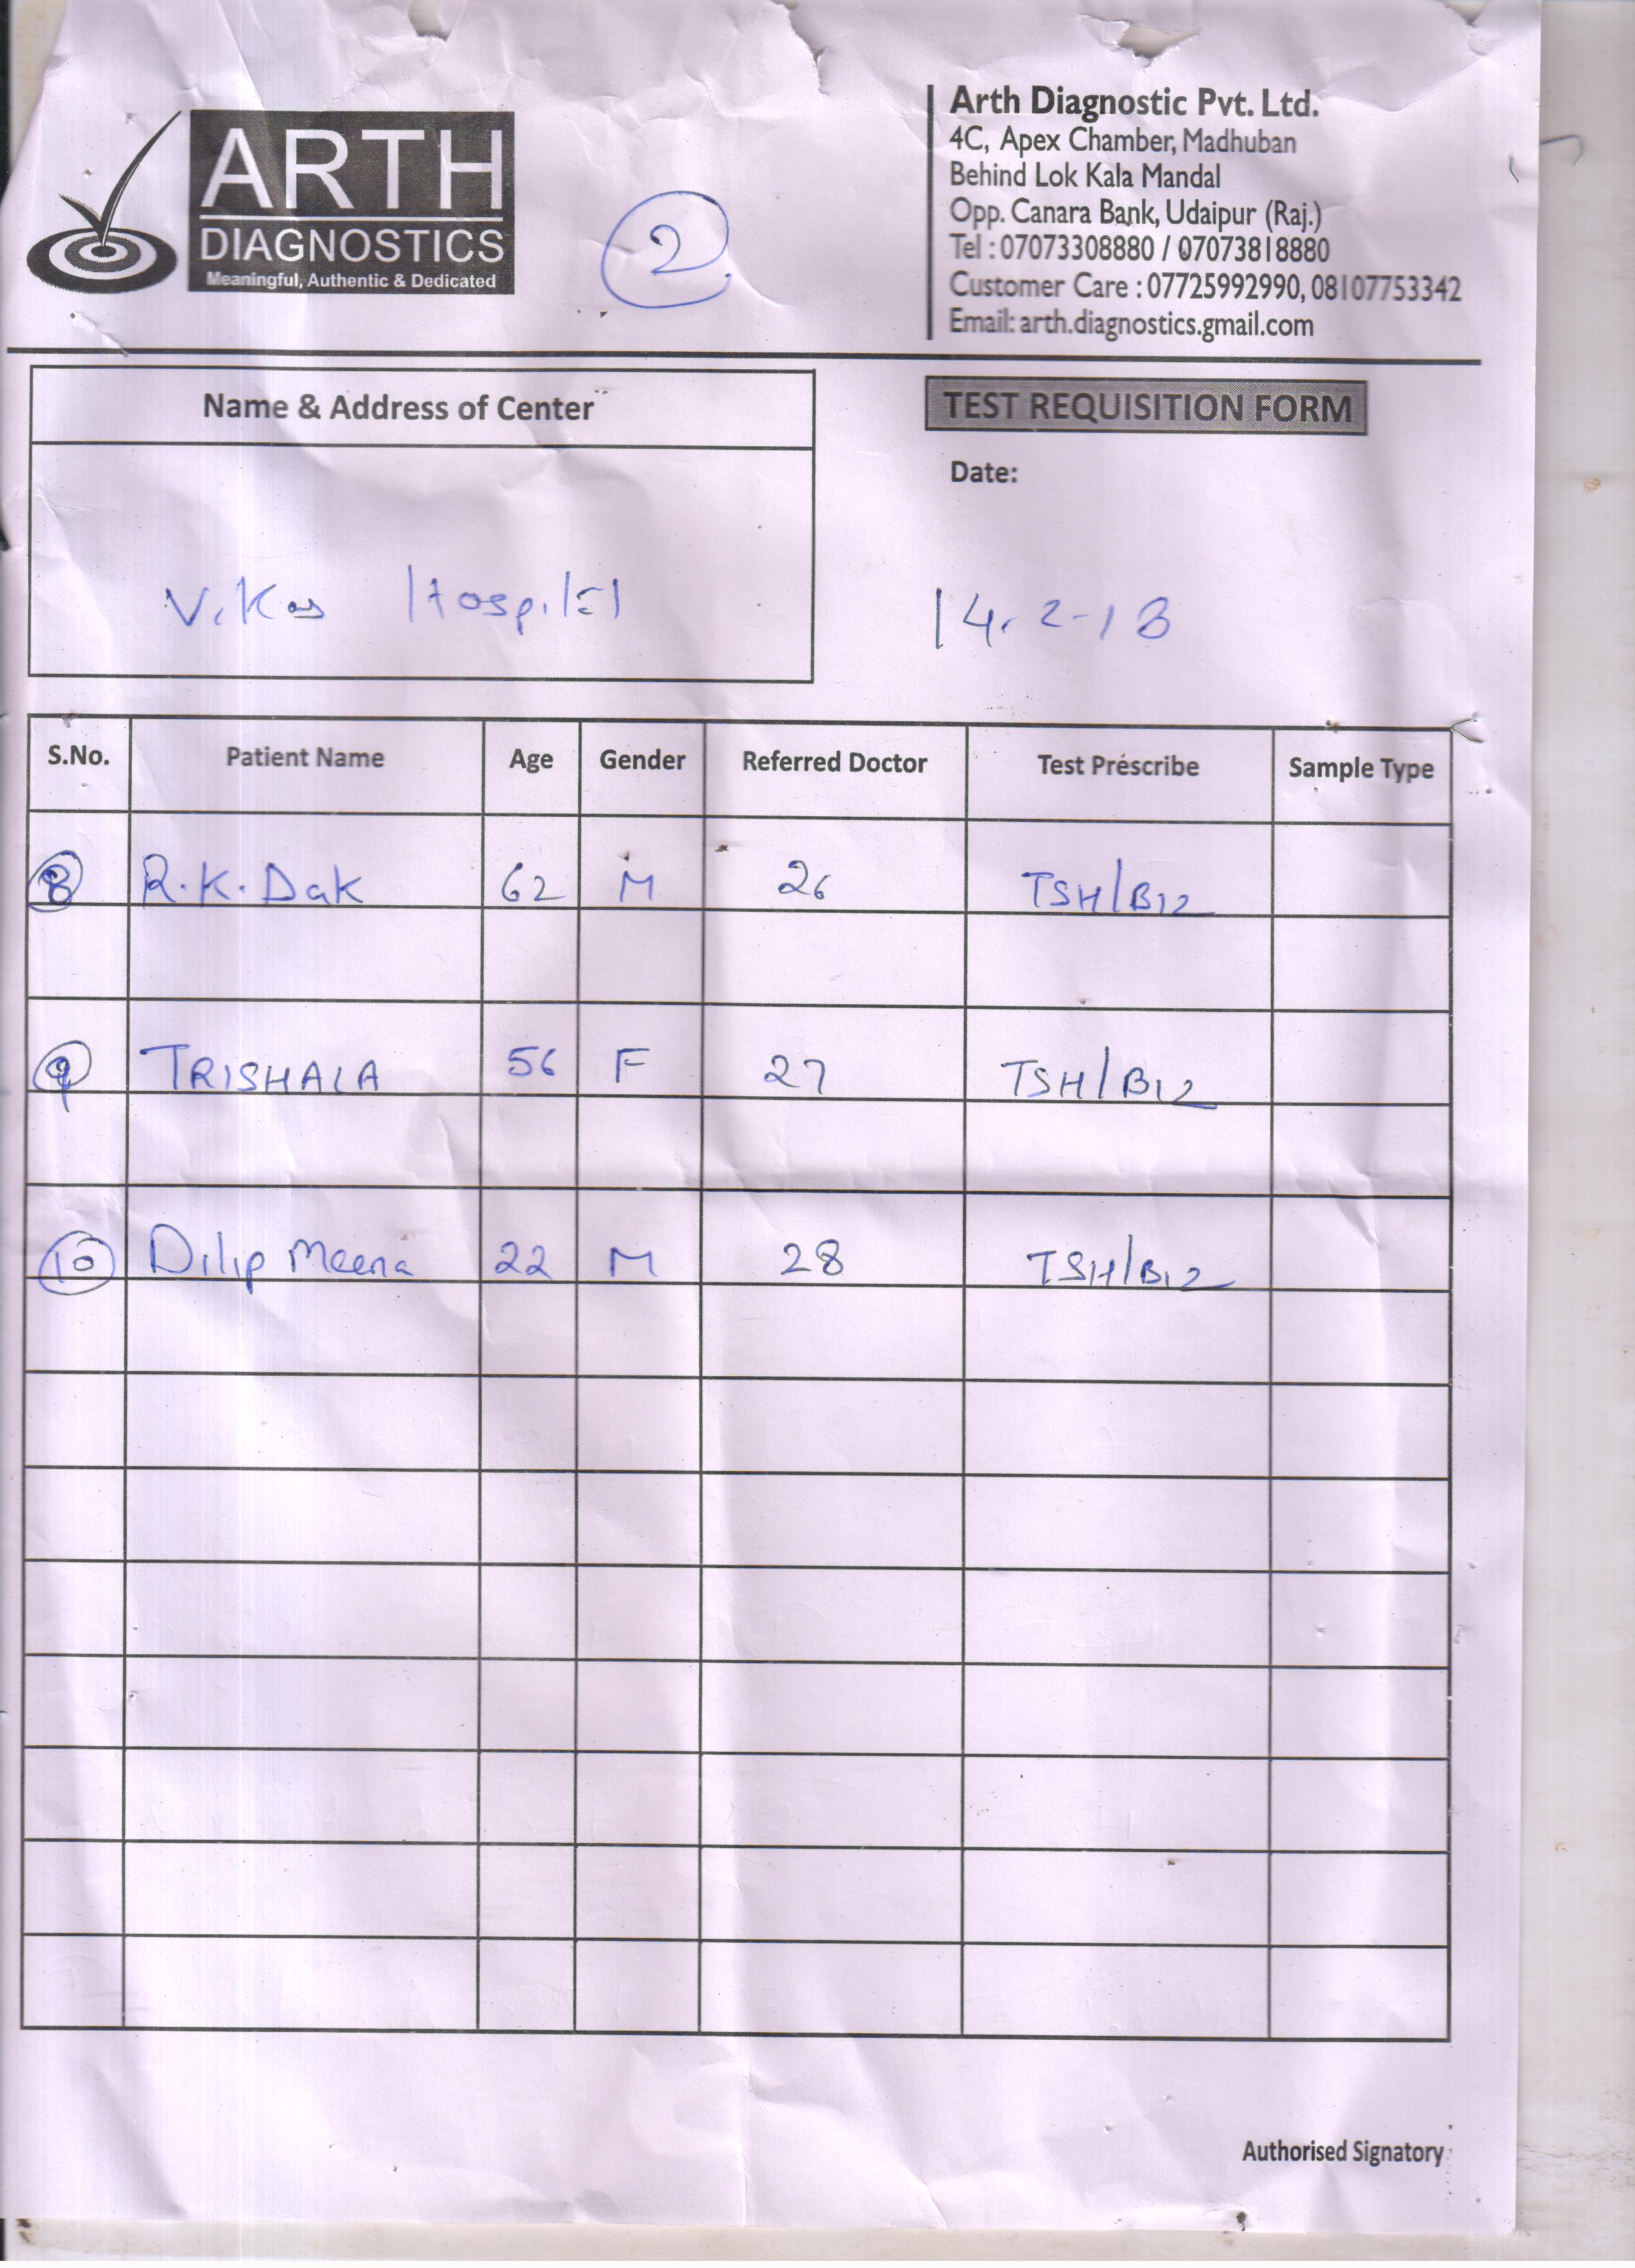 ARTH
DIAGNOSTICS
Meaningful, Authentic & Dedicated
2
Arth Diagnostic Pvt. Ltd.
4C, Apex Chamber, Madhuban
Behind Lok Kala Mandal
Opp. Canara Bank, Udaipur (Raj.)
Tel : 07073308880 / 07073818880
Customer Care : 07725992990, 08107753342
Email: arth.diagnostics.gmail.com
Name & Address of Center
Vikas Hospital
TEST REQUISITION FORM
Date:
14-2-18
S.No. Patient Name Age Gender Referred Doctor Test Prescribe Sample Type
8 R.K.Dak 62 M 26 TSH/B12
9 TRISHALA 56 F 27 TSH/B12
10 Dilip Meena 22 M 28 TSH/B12
Authorised Signatory